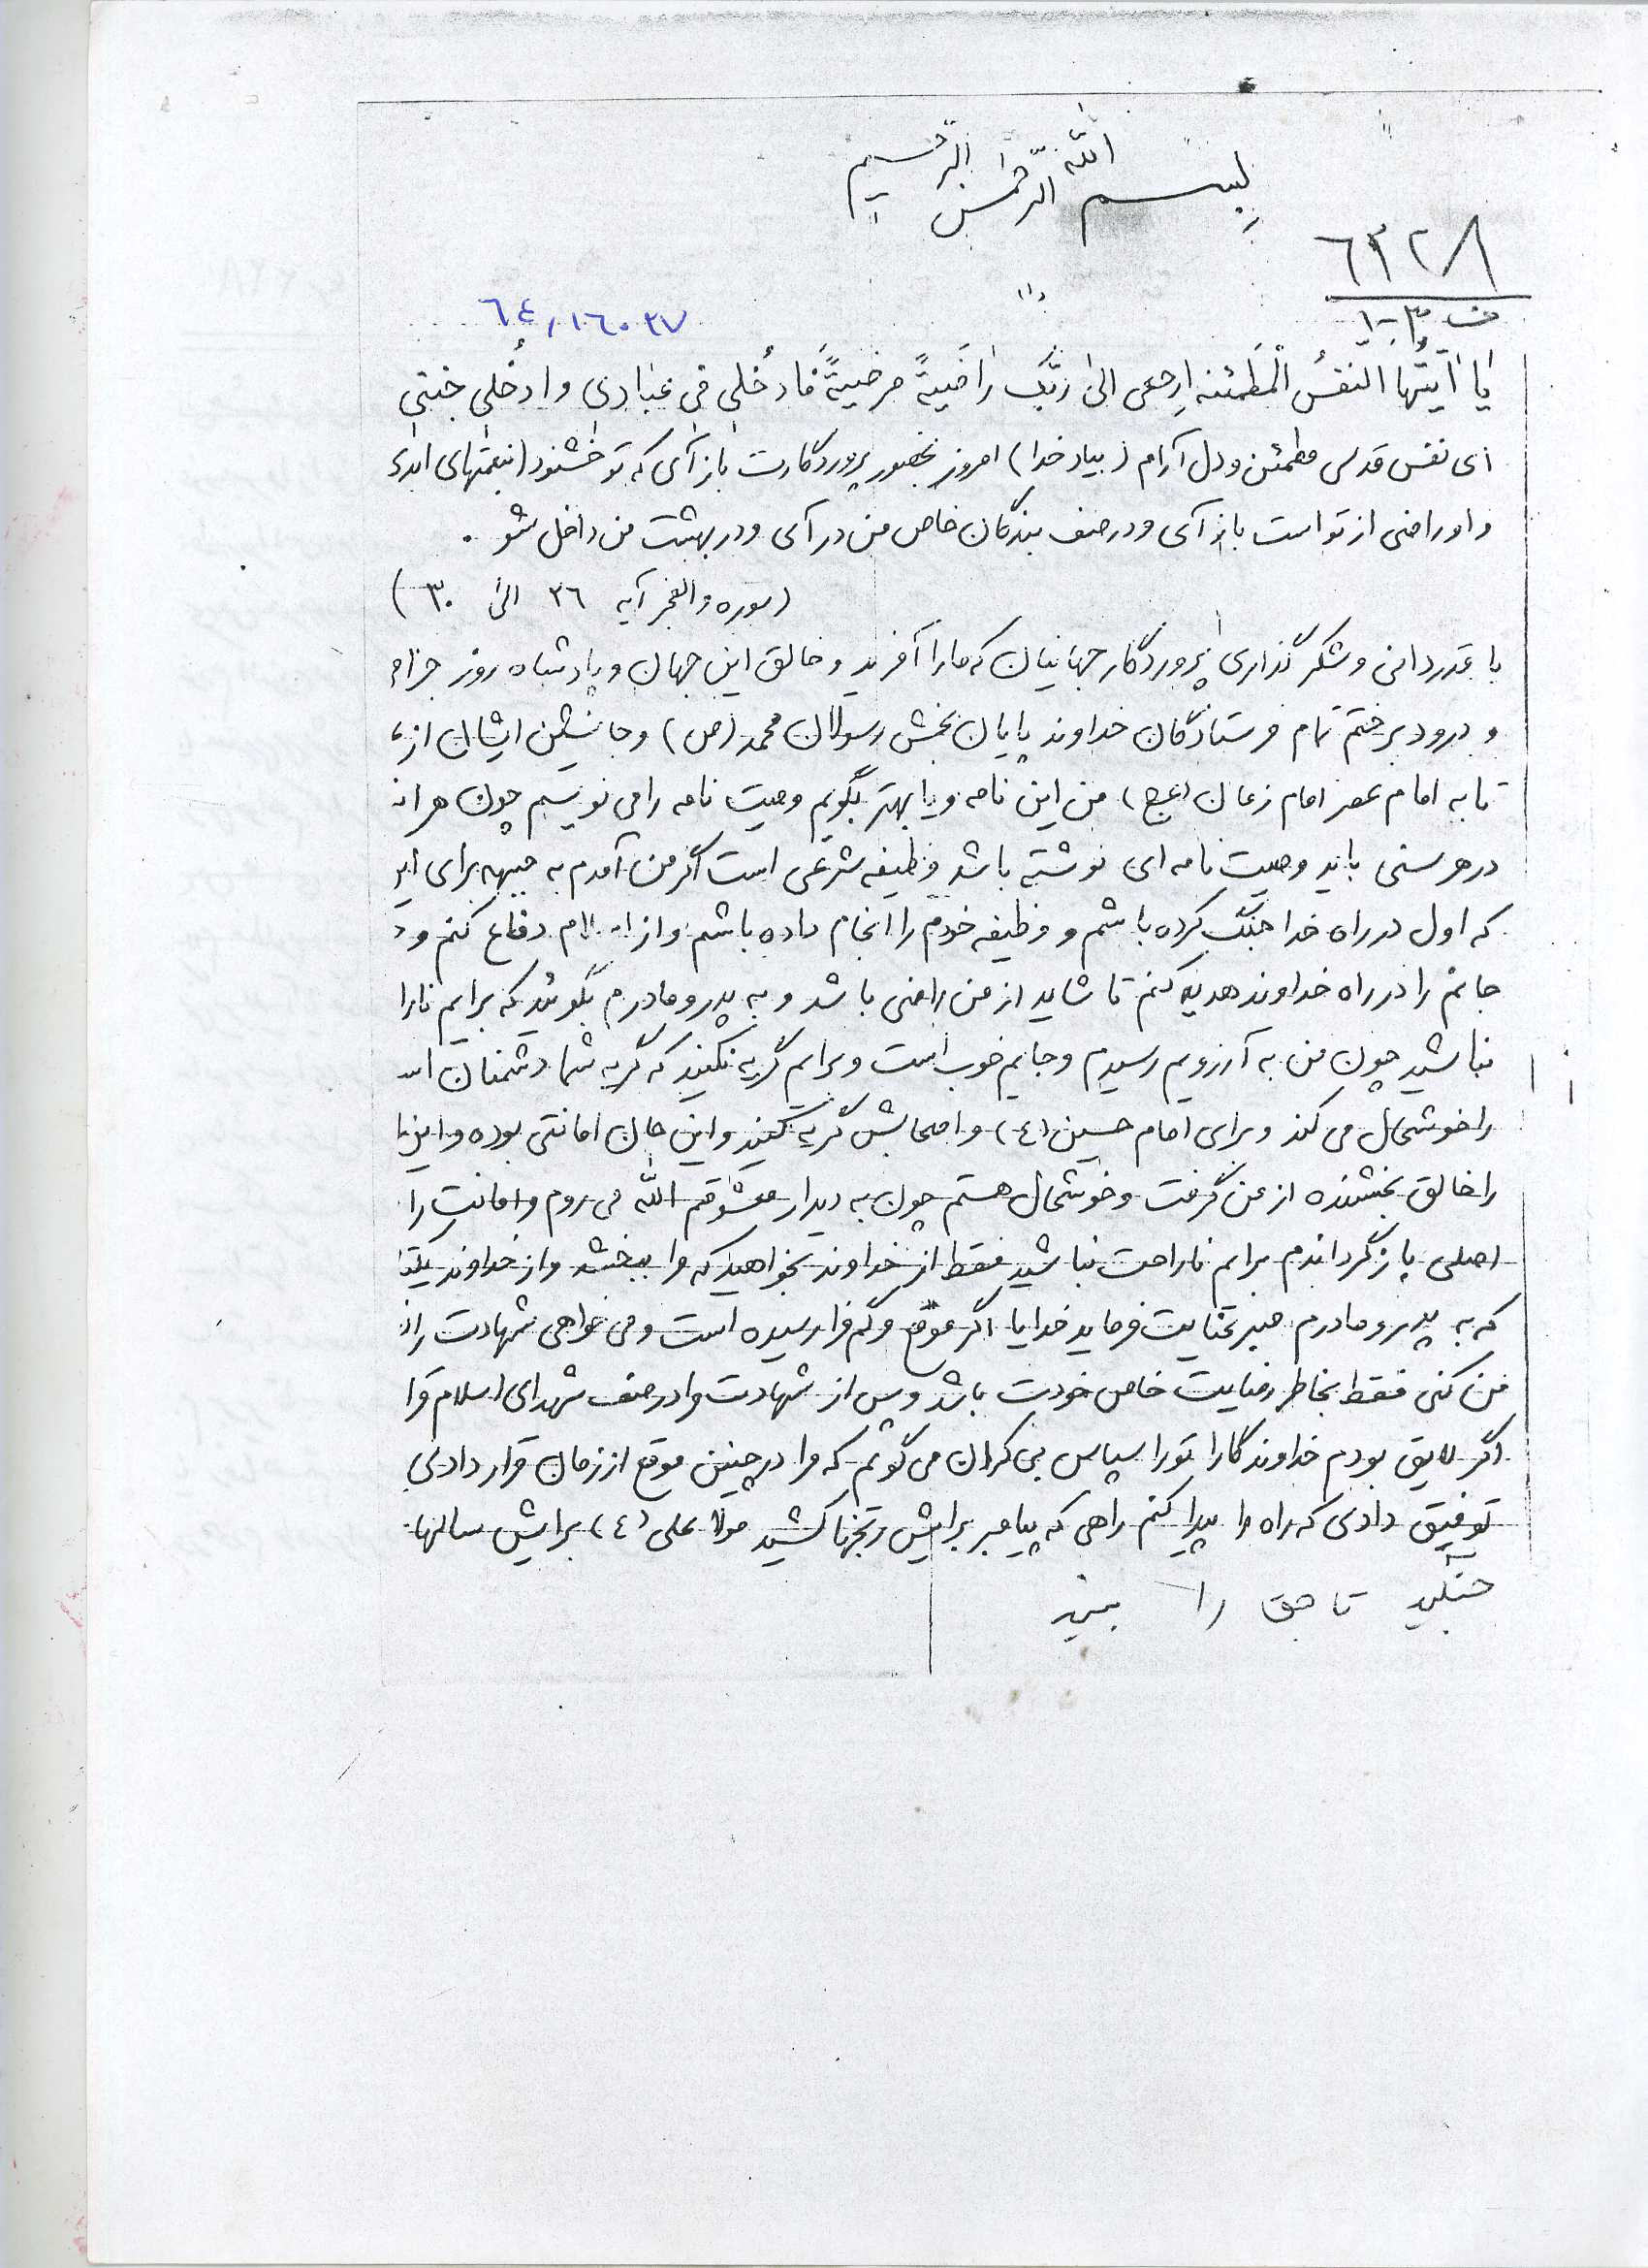 بسم الله الرحمن الرحیم
٦٣٢٨
ف ٣-١
٦٤,١٦٠٣٧
یا اَیَّتُها النَفسُ الْمُطمَئنه اِرجعی الیٰ رَبّکِ راضَیةً مرضیةً فَادخُلی فی عِبادی وادخُلی جنتی
ای نفس قدسی مطمئن و دل آرام (بیاد خدا) امروز بحضور پروردگارت بازآی که تو خشنود (بنعمتهای ابدی
و او راضی از تو است باز آی و در صف بندگان خاص من در آی و در بهشت من داخل شو .
(سوره والفجر آیه ٢٦ الی ٣٠)
با قدردانی و شکر گذاری پروردگار جهانیان که ما را آفرید و خالق این جهان و پادشاه روز جزاء
و درود بر ختم تمام فرستادگان خداوند پایان بخش رسولان محمد (ص) و جانشین ایشان از
تا به امام عصر امام زمان (عج) من این نامه و یا بهتر بگویم وصیت نامه را می نویسم چون هر ان
در هر سنی باید وصیت نامه ای نوشته باشد وظیفه شرعی است اگر من آمدم به جبهه برای این
که اول در راه خدا جنگ کرده باشم و وظیفه خودم را انجام داده باشم و از اسلام دفاع کنم و
جانم را در راه خداوند هدیه کنم تا شاید از من راضی باشد و به پدر و مادرم بگوئید که برایم نارا
نباشید چون من به آرزویم رسیدم و جایم خوب است و برایم گریه نکنید که گریه شما دشمنان اس
را خوشحال می کند و برای امام حسین (ع) و اصحابش گریه کنید و این جان امانتی بوده و این
را خالق بخشنده از من گرفت و خوشحال هستم چون به دیدار معشوقم الله می روم و امانت را
اصلی باز گرداندم برایم ناراحت نباشید فقط از خداوند بخواهید که مرا ببخشد و از خداوند
که به پدر و مادرم صبر عنایت فرماید خدایا اگر موقع مرگم فرا رسیده است و می خواهی شهادت را
من کنی فقط بخاطر رضایت خاص خودت باشد و پس از شهادت مرا در صف شهدای اسلام قرا
اگر لایق بودم خداوندگارا تو را سپاس بی کران می گوئم که مرا در چنین موقع از زمان قرار دادی
توفیق دادی که راه را پیدا کنم راهی که پیامبر برایش رنجها کشید مولا علی (ع) برایش سالها
جنگید تا حق را ببیند